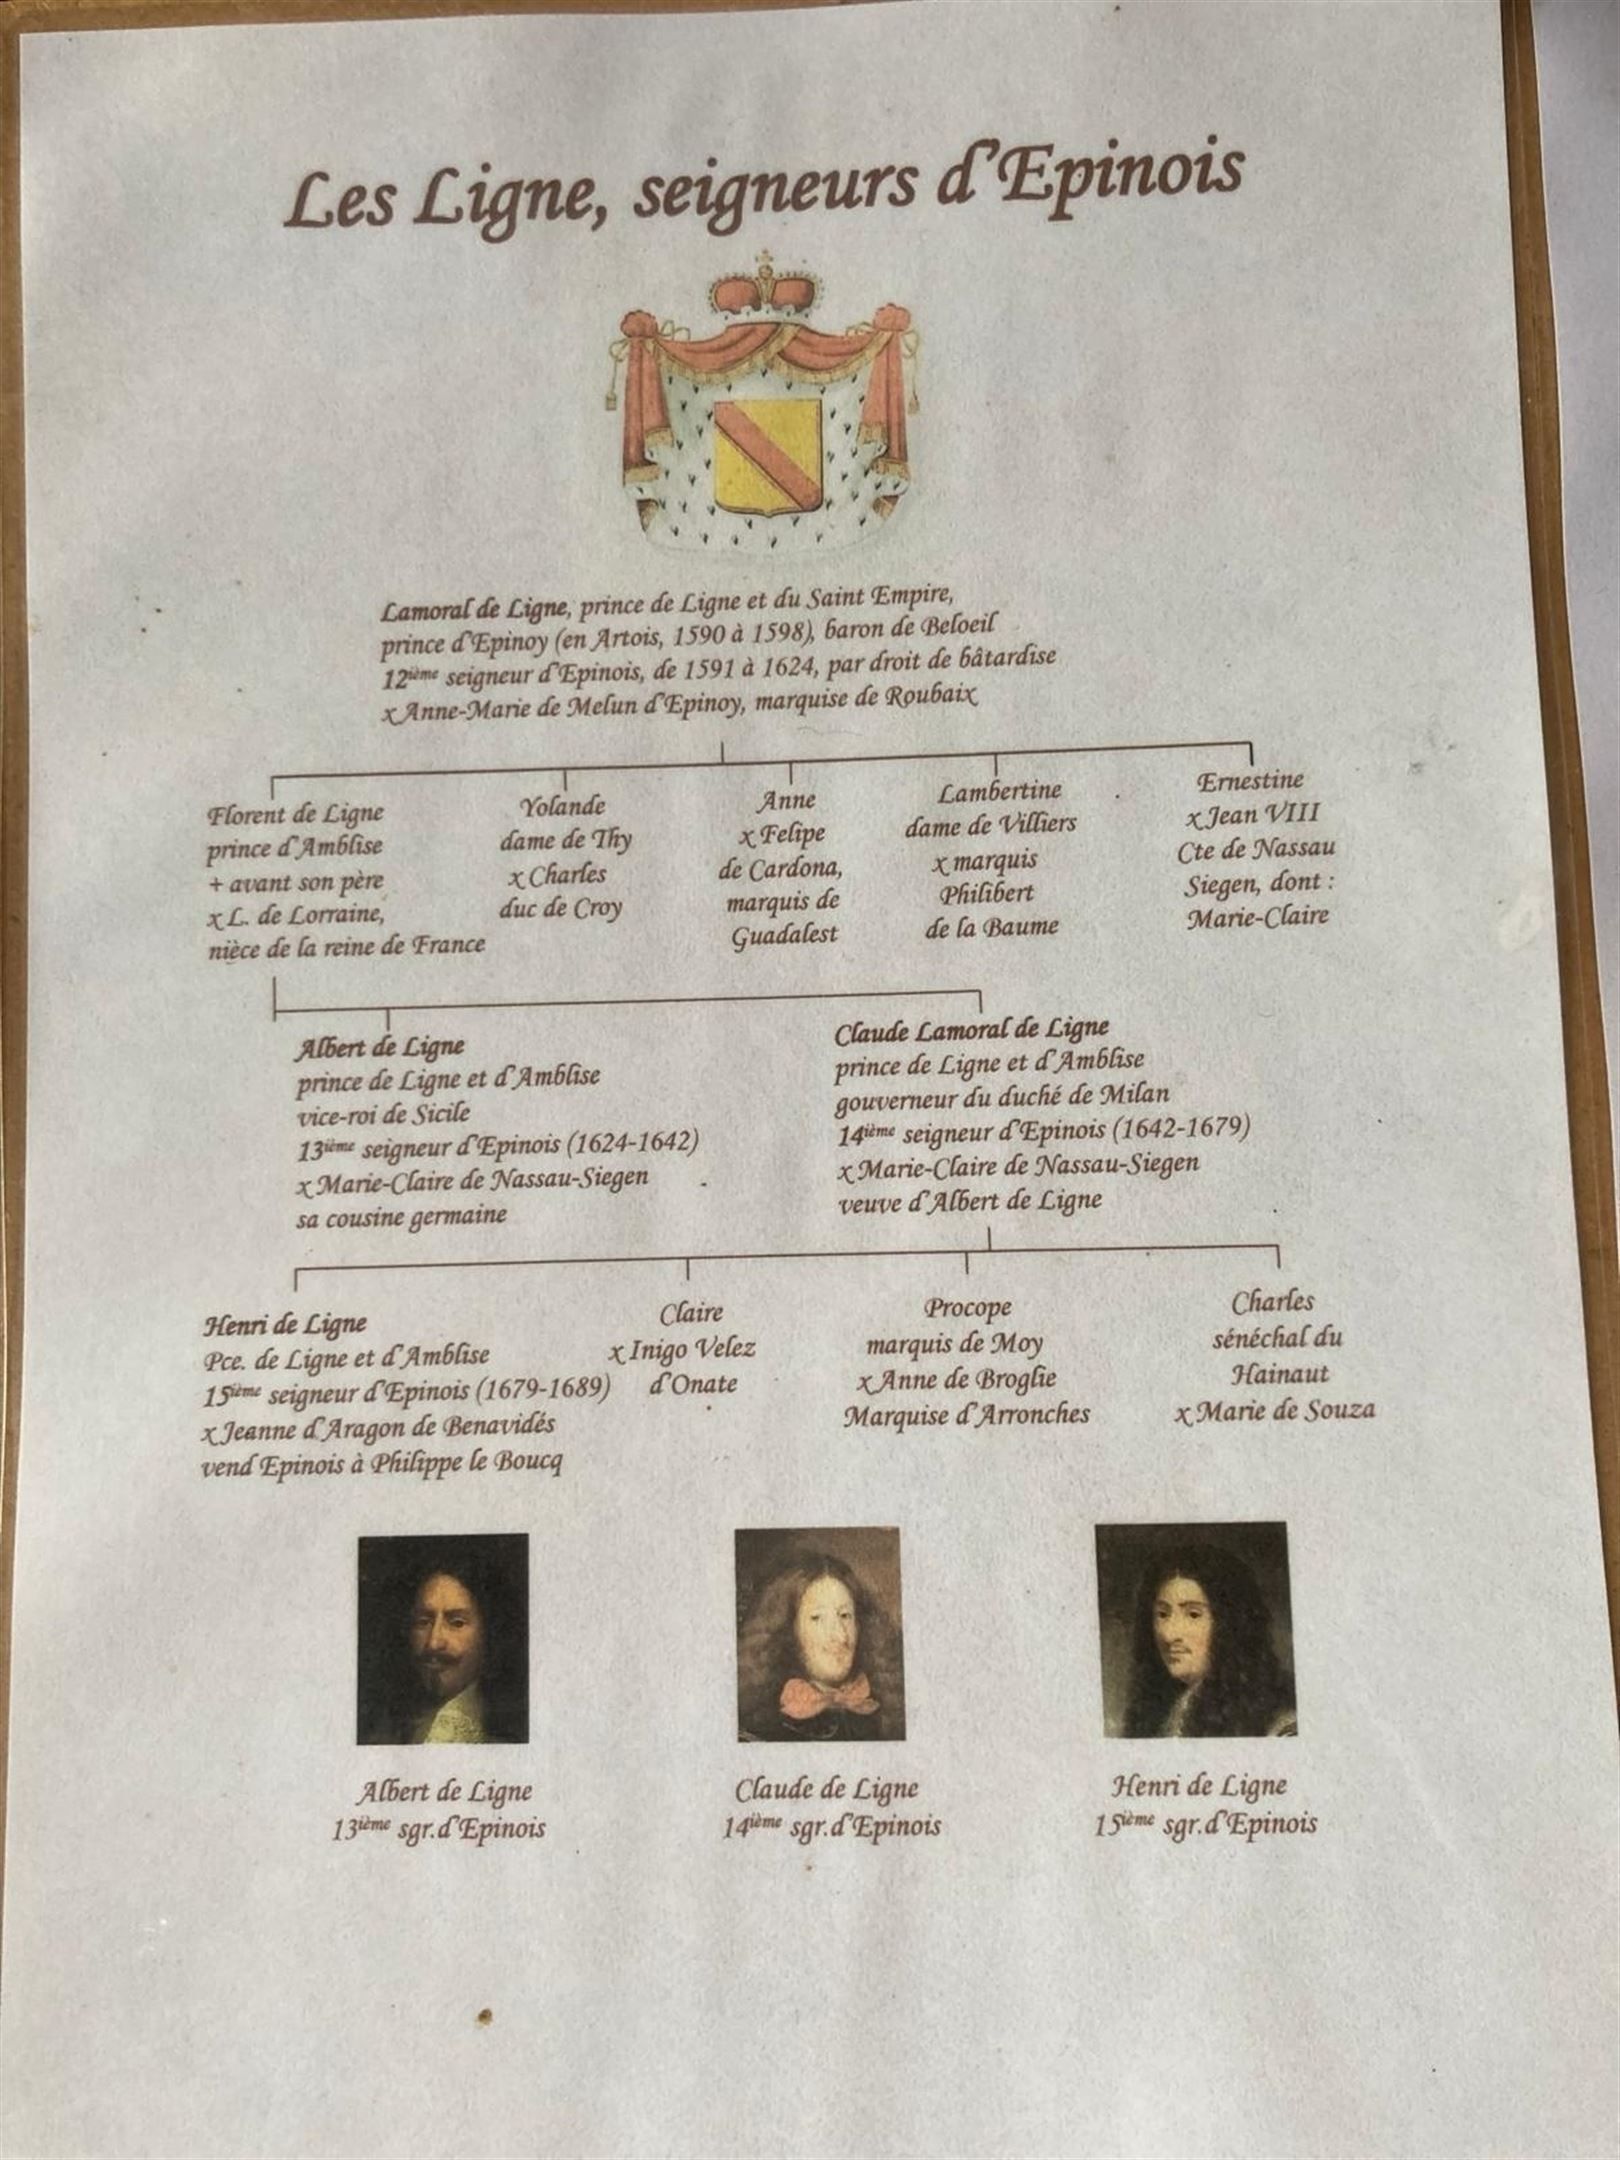 Les Ligne, seigneurs d'Epinois
Lamoral de Ligne, prince de Ligne et du Saint Empire,
prince d'Epinoy (en Artois, 1590 à 1598), baron de Beloeil
12ième seigneur d'Epinois, de 1591 à 1624, par droit de bâtardise
x Anne-Marie de Melun d'Epinoy, marquise de Roubaix
Florent de Ligne
prince d'Amblise
+ avant son père
x L. de Lorraine,
nièce de la reine de France
Yolande
dame de Thy
x Charles
duc de Croy
Anne
x Felipe
de Cardona,
marquis de
Guadalest
Lambertine
dame de Villiers
x marquis
Philibert
de la Baume
Ernestine
x Jean VIII
Cte de Nassau
Siegen, dont :
Marie-Claire
Albert de Ligne
prince de Ligne et d'Amblise
vice-roi de Sicile
13ième seigneur d'Epinois (1624-1642)
x Marie-Claire de Nassau-Siegen
sa cousine germaine
Claude Lamoral de Ligne
prince de Ligne et d'Amblise
gouverneur du duché de Milan
14ième seigneur d'Epinois (1642-1679)
x Marie-Claire de Nassau-Siegen
veuve d'Albert de Ligne
Henri de Ligne
Pce. de Ligne et d'Amblise
15ième seigneur d'Epinois (1679-1689)
x Jeanne d'Aragon de Benavidés
vend Epinois à Philippe le Boucq
Claire
x Inigo Velez
d'Onate
Procope
marquis de Moy
x Anne de Broglie
Marquise d'Arronches
Charles
sénéchal du
Hainaut
x Marie de Souza
Albert de Ligne
13ième sgr.d'Epinois
Claude de Ligne
14ième sgr.d'Epinois
Henri de Ligne
15ième sgr.d'Epinois